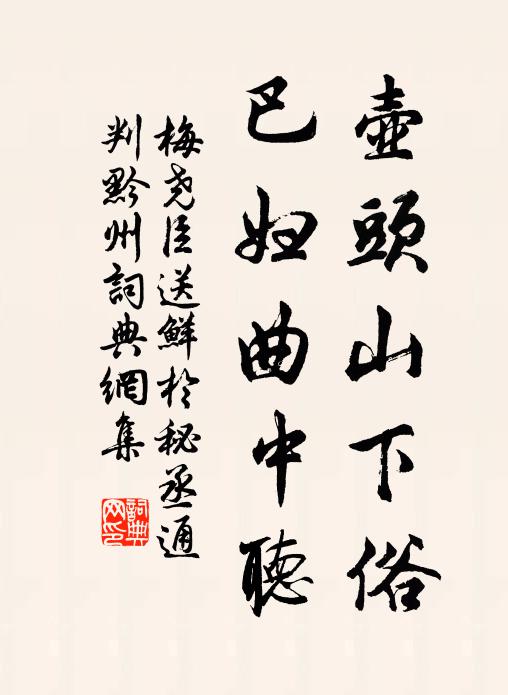 壺頭山下俗
巴妇曲中聽
梅尧臣送鮮於秘丞通
判黔州詞典網集
詞典
网印